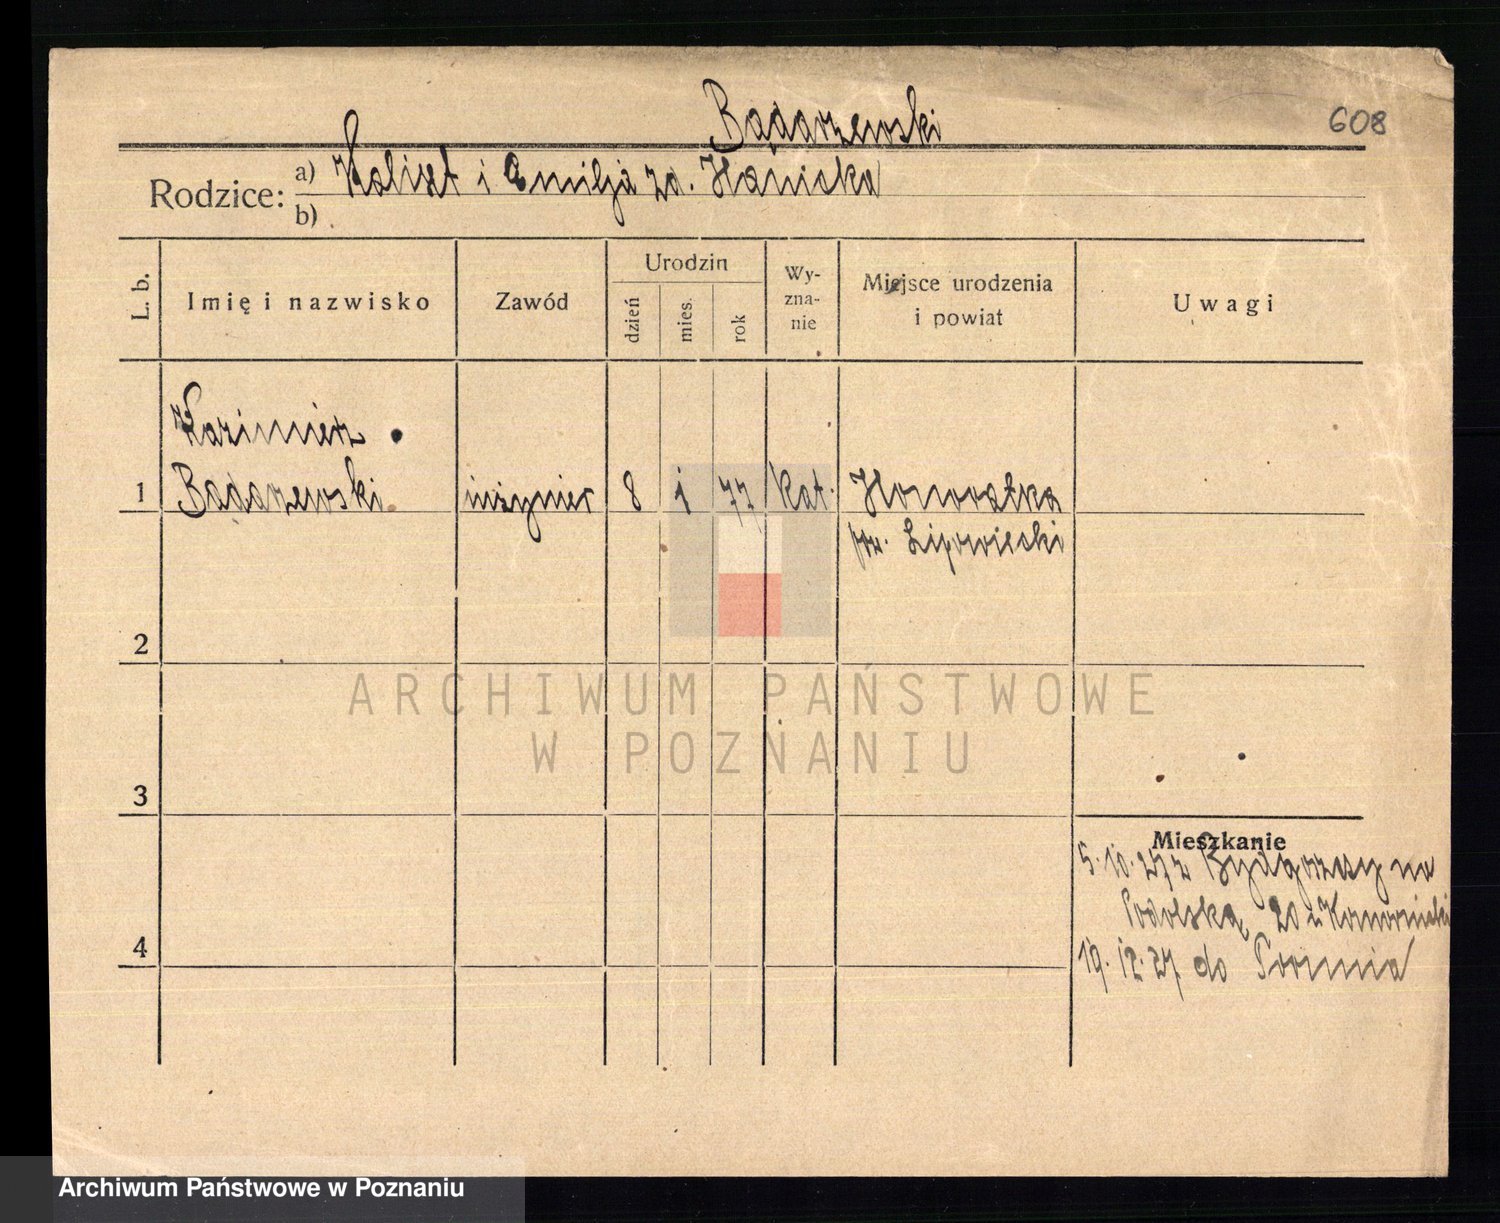 Bądarzewski
608
Rodzice: a) Kalixt i Emilja zd. Hanicka
b)
L. b. Imię i nazwisko Zawód Urodzin dzień mies. rok Wyznanie Miejsce urodzenia i powiat Uwagi
Kazimierz
1 Bądarzewski inżynier 8 1 77 kat. Honoratka
pow. Lipowiecki
2
ARCHIWUM PAŃSTWOWE
W POZNANIU
3
Mieszkanie
5.10.27 z Bydgoszczy na
Podolską 20 u
4
19.12.27 do Torunia
Archiwum Państwowe w Poznaniu